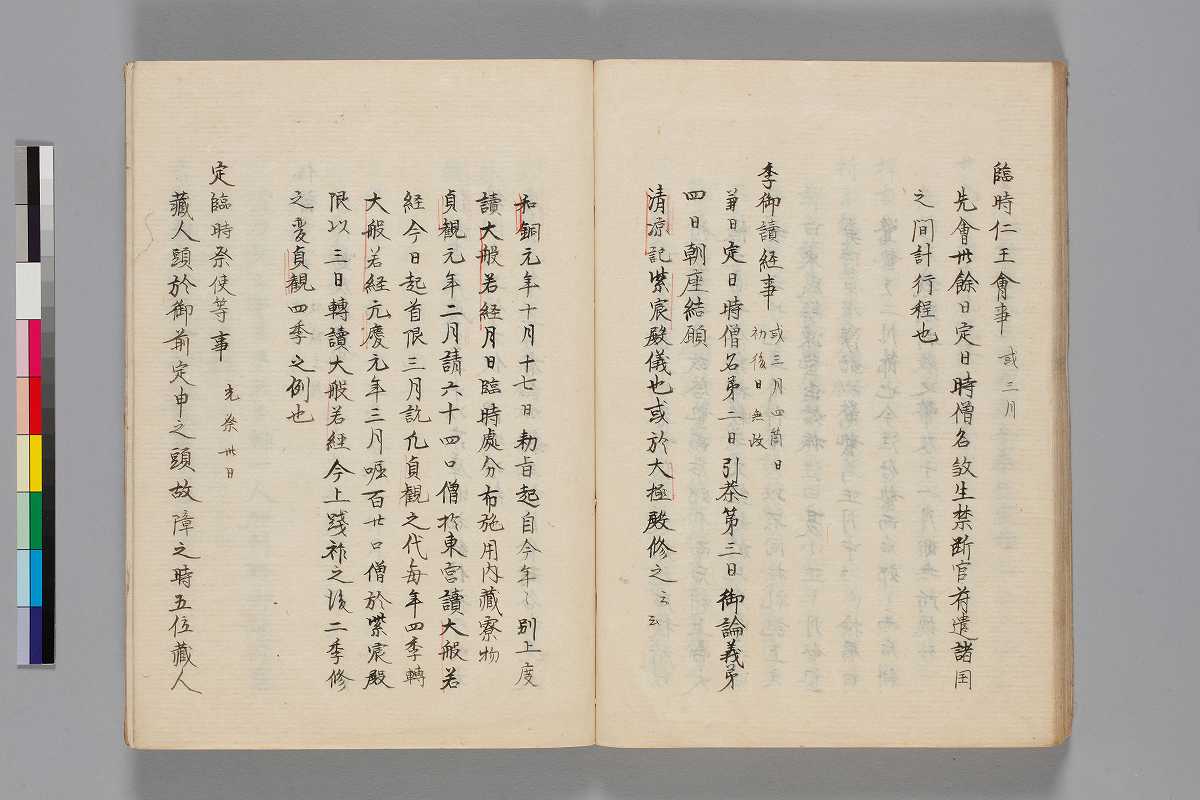 臨時仁王會事 或三月
先會卅餘日定日時僧名放生禁断官符遣諸国
之間計行程也
季御讀経事 或三月四箇日
初後日無政
兼日定日時僧名第二日引茶第三日御論義第
四日朝座結願
清凉記紫宸殿儀也或於大極殿修之云云
和銅元年十月十七日勅旨起自今年別上度
讀大般若経月日臨時處分布施用内藏寮物
貞觀元年二月請六十四口僧於東宮讀大般若
経今日起首限三月訖凡貞觀之代毎年四季轉
大般若経元慶元年三月嘔百廿口僧於紫宸殿
限以三日轉讀大般若経今上踐祚之後二季修
之変貞觀四季之例也
定臨時祭使等事 先祭卅日
藏人頭於御前定申之頭故障之時五位藏人